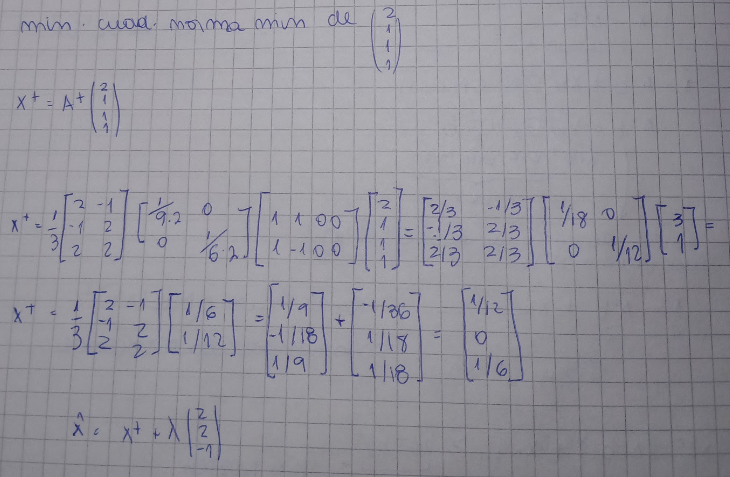 min. cuad. norma min de (2 1 1 1)
x⁺ = A⁺ (2 1 1 1)
x⁺ = 1/3 [2 -1; -1 2; 2 2] [1/9.2 0; 0 1/6.2] [1 1 0 0; 1 -1 0 0] [2 1 1 1] = [2/3 -1/3; -1/3 2/3; 2/3 2/3] [1/18 0; 0 1/12] [3 1] =
x⁺ = 1/3 [2 -1; -1 2; 2 2] [1/6 1/12] = [1/9 -1/18 1/9] + [-1/36 1/18 1/18] = [1/12 0 1/6]
x̂ = x⁺ + λ (2 2 -1)